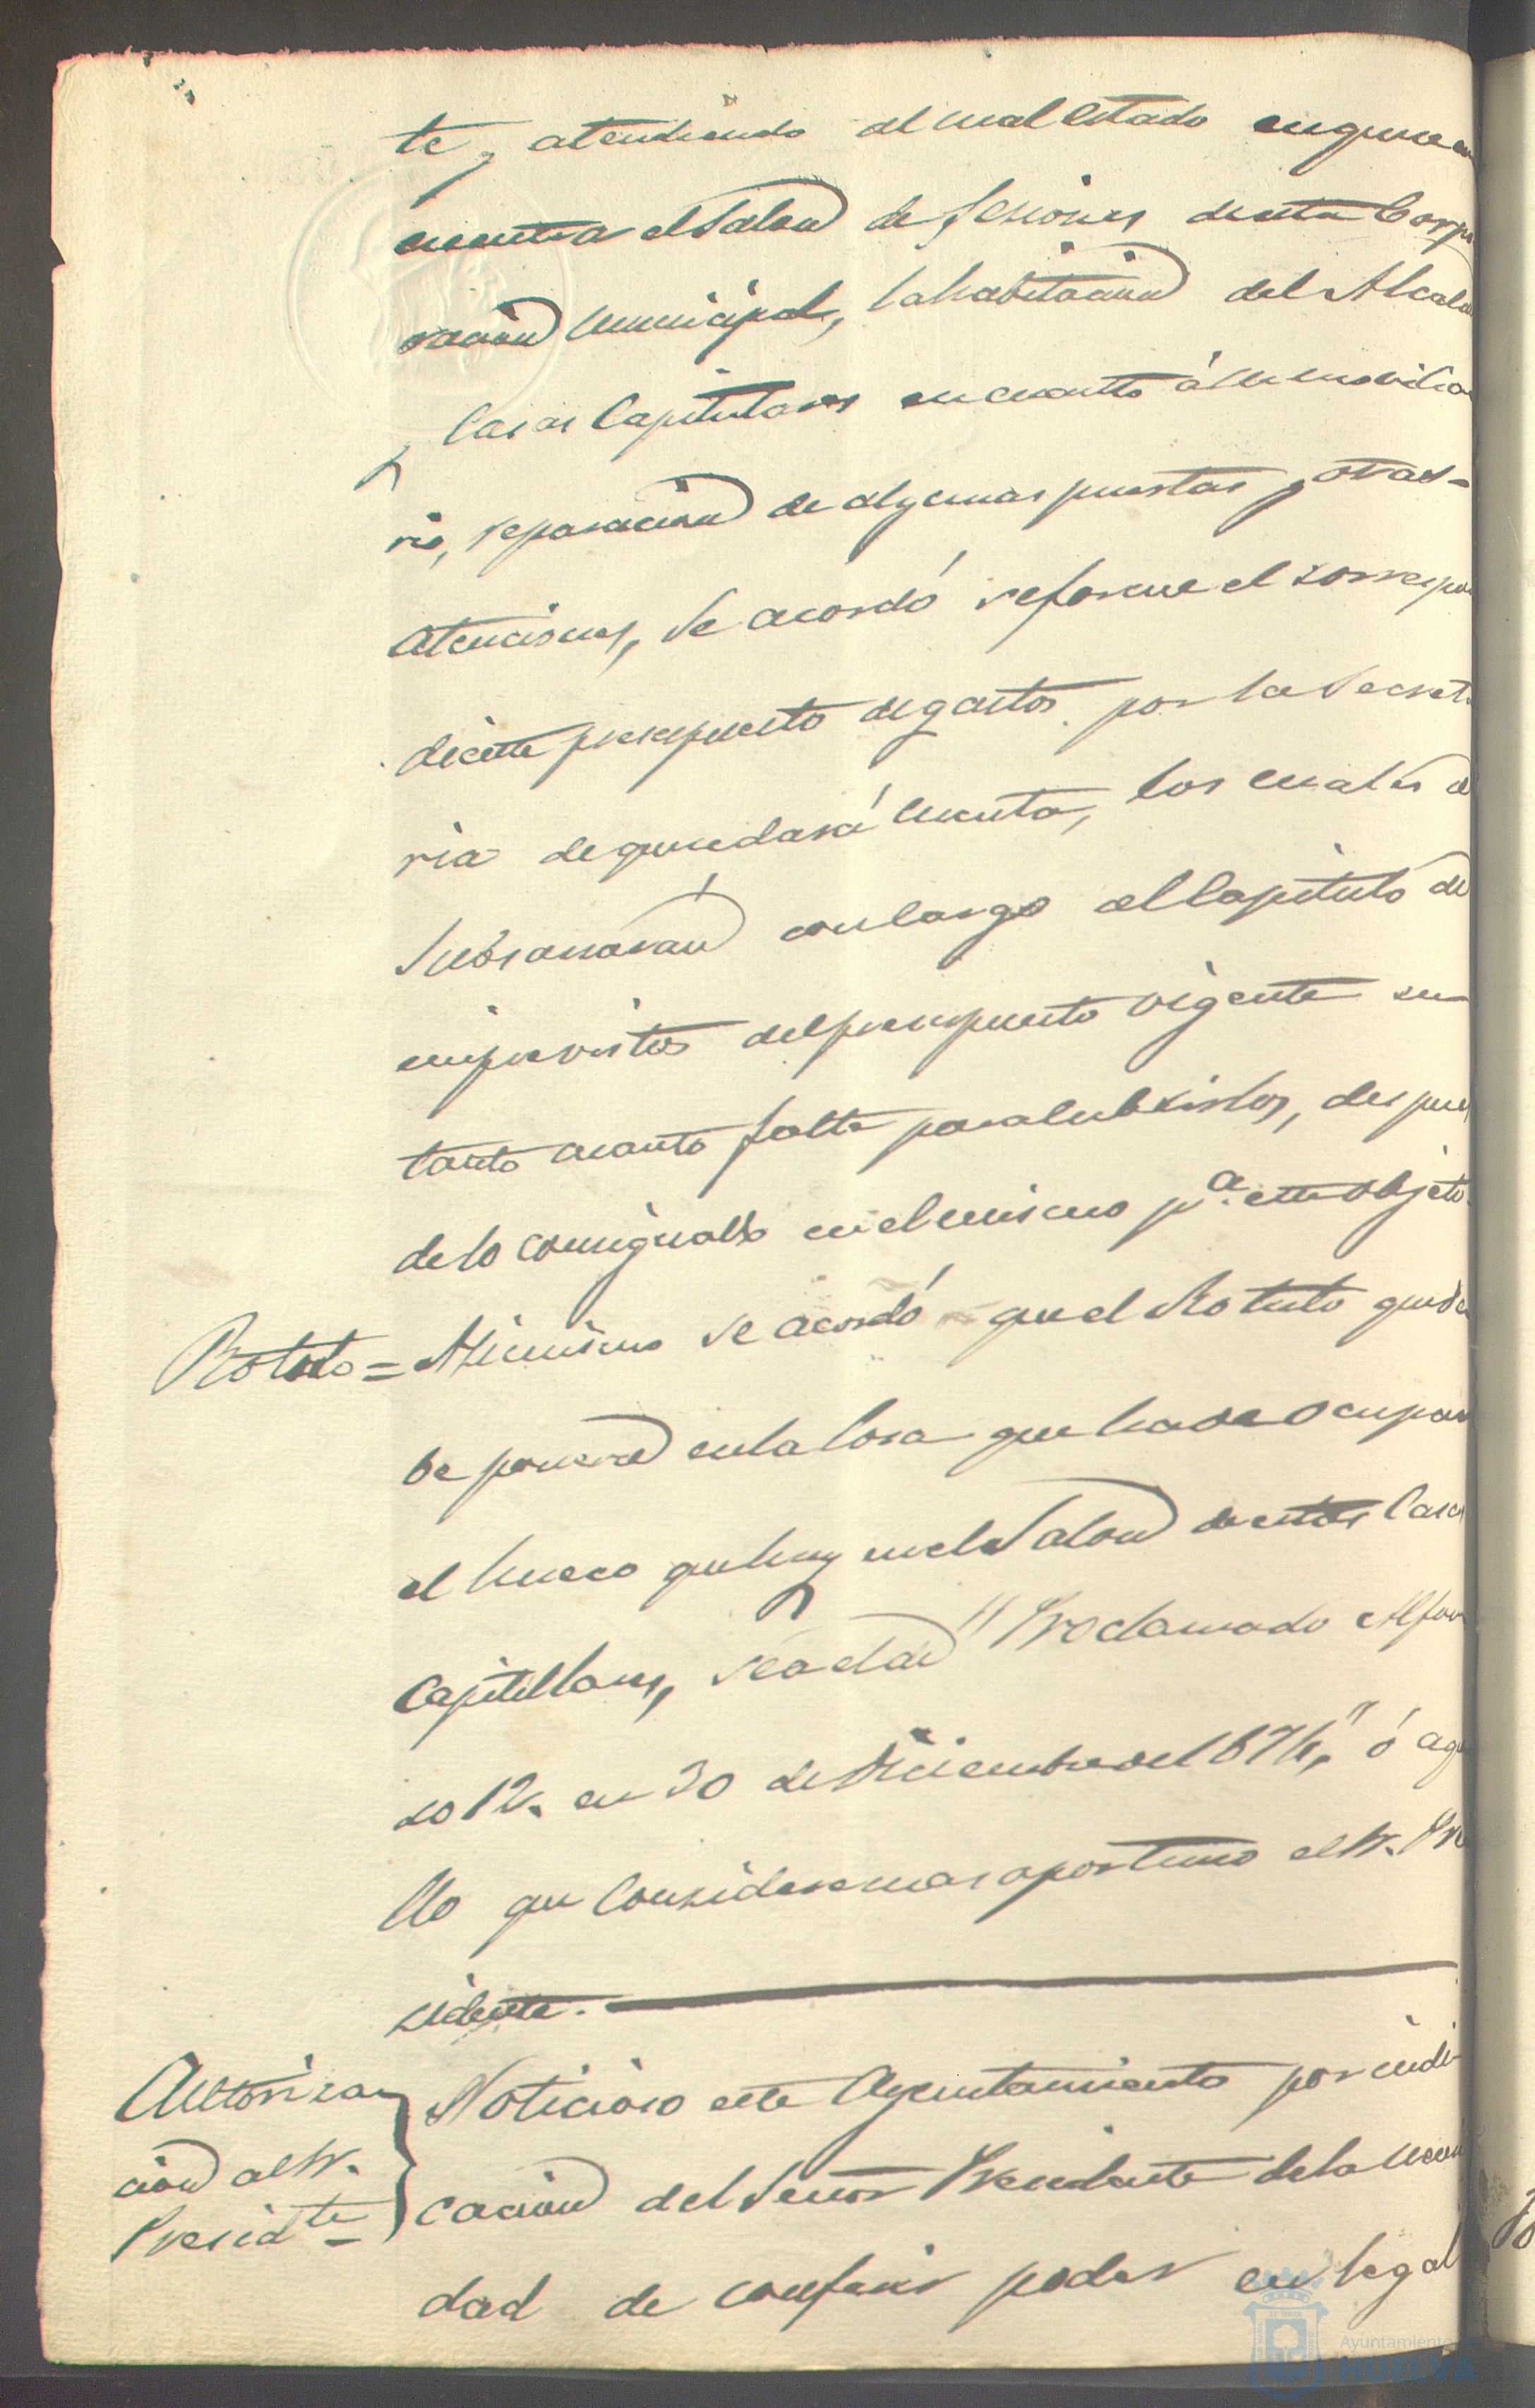 te, atendiendo al mal estado enque se en
cuentra el Salon de Sesiones de esta Corpo
racion Municipal, la habitacion del Alcalde
y Casas Capitulares en cuanto á su movilia
rio, reparacion de algunas puertas y otras
atenciones, se acordó se forme el correspon
diente presupuesto de gastos por la Secreta
ria de que se dará cuenta, los cuales se
subsanarán con cargo al Capitulo de
imprevistos del presupuesto vigente en
tanto cuanto falte para cubrirlos, despues
de lo consignado en el mismo pª. este objeto.
Rotulo = Asimismo se acordó que el Rotulo que de
be ponerse en la losa que ha de ocupar
el hueco que hay en el Salon de estas Casas
Capitulares, sea el de "Proclamado Alfon
so 12. en 30 de Diciembre del 874," ó aque
llo que considere mas oportuno el Sr. Pre
sidente.
Autoriza
cion al Sr.
Presidte =
Noticioso este Ayuntamiento por indi
cacion del Señor Presidente de la necesi
dad de conferir poder en legal
Ayuntamiento de
HUELVA